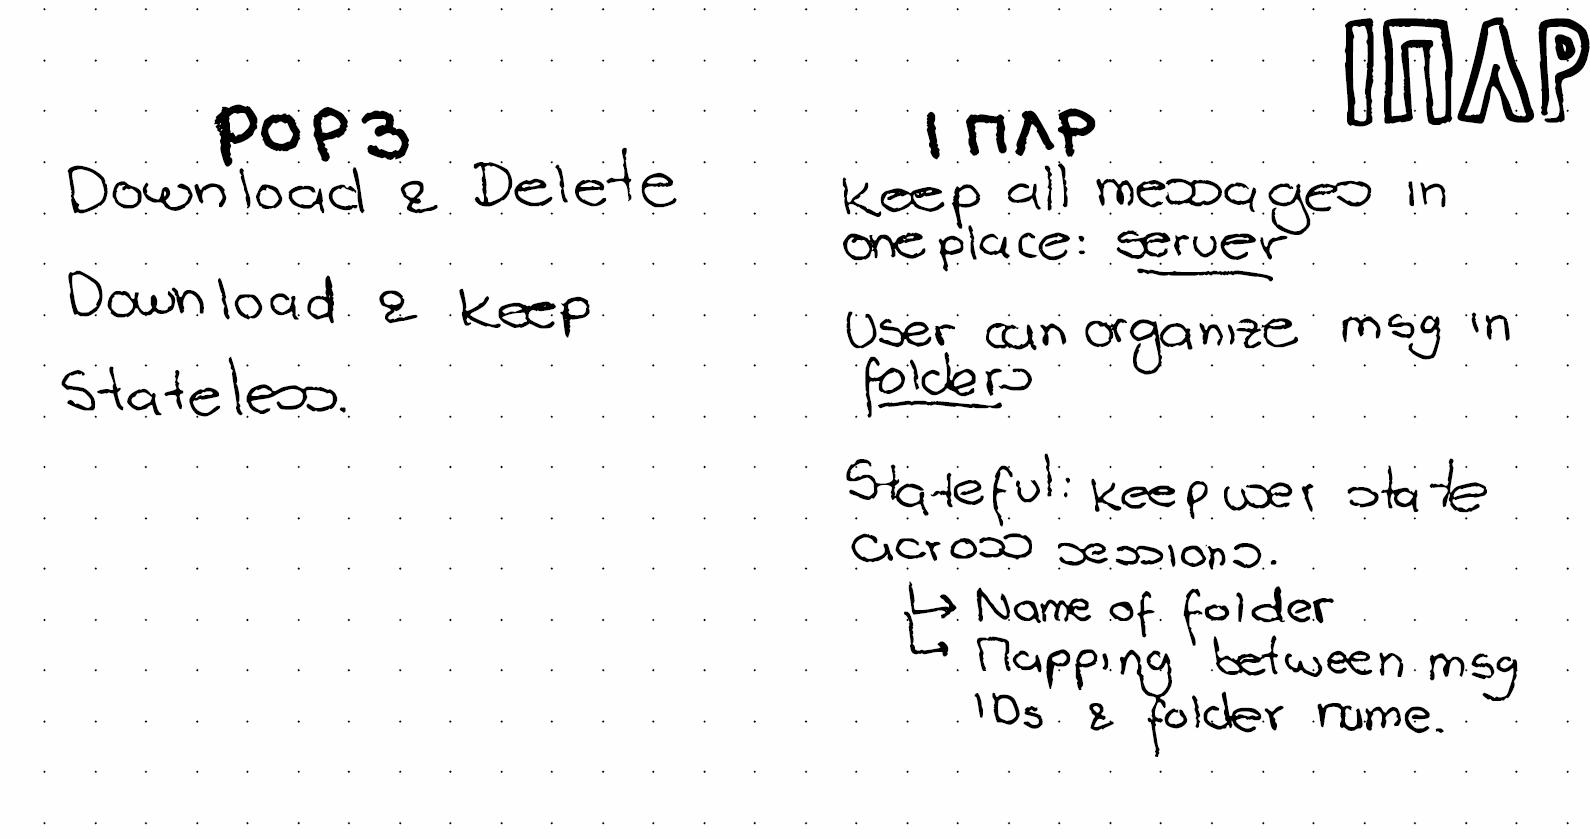 IMAP
POP3
Download & Delete
Download & keep
Stateless.
IMAP
Keep all messages in
one place: server
User can organize msg in
folders
Stateful: keep user state
across sessions.
↳ Name of folder
↳ Mapping between msg
IDs & folder name.